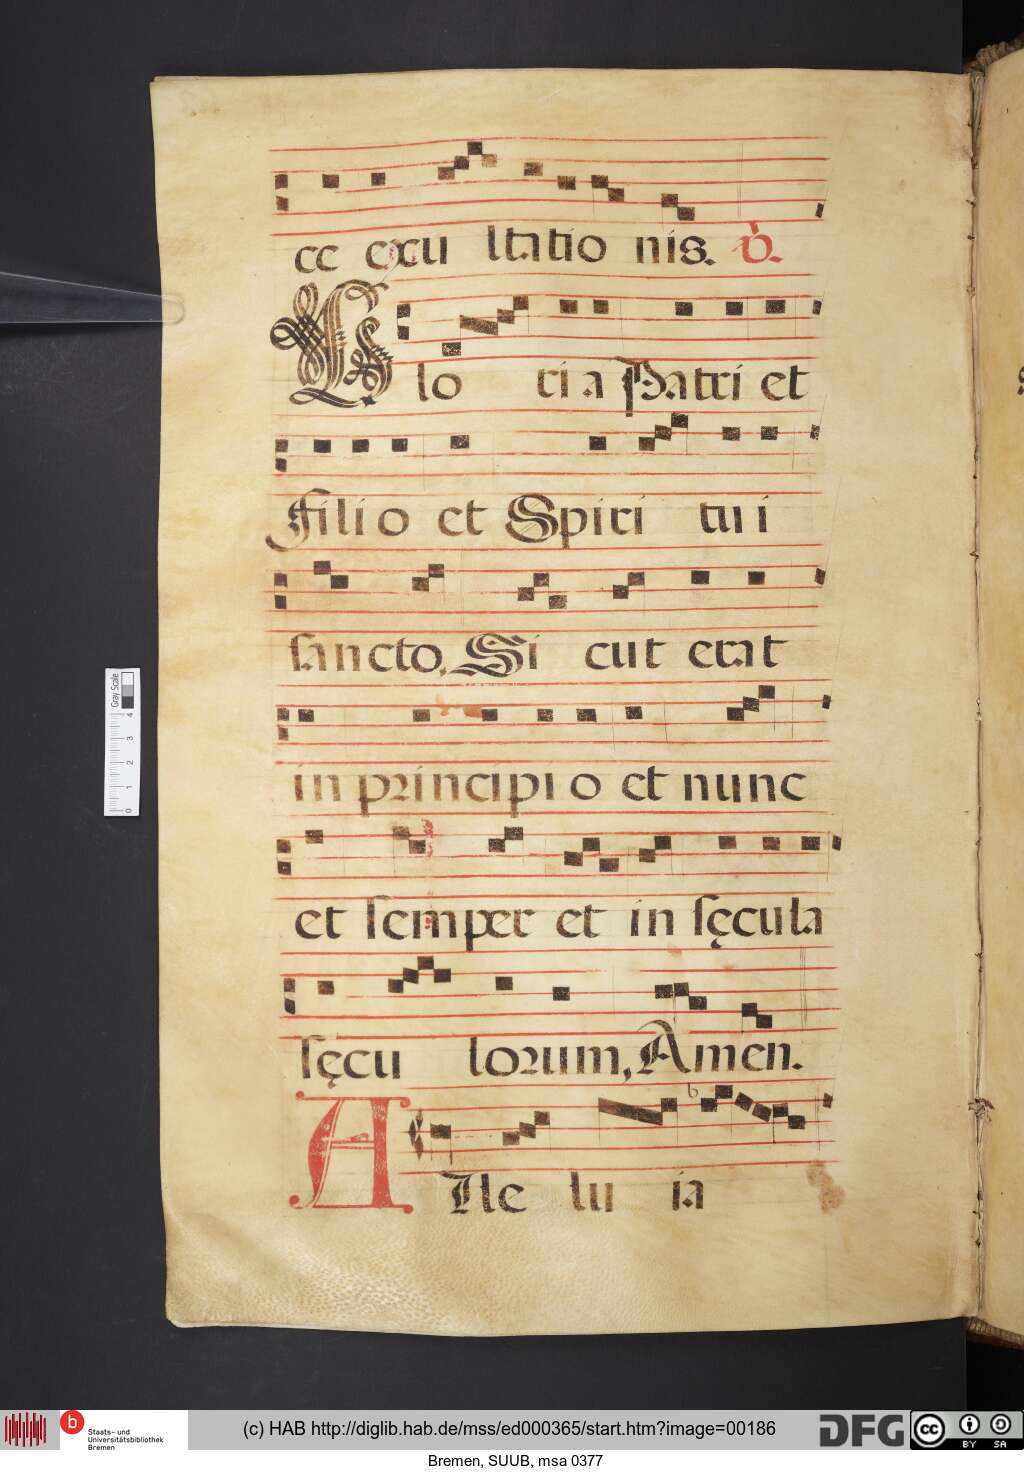 ce exu ltatio nis. V.
Glo ri a Patri et
Filio et Spiri tui
sancto, Si cut erat
in principi o et nunc
et semper et in sęcula
sęcu lorum, Amen.
b
A lle lu ia
Gray Scale
0 1 2 3 4
b
Staats- und
Universitätsbibliothek
Bremen
(c) HAB http://diglib.hab.de/mss/ed000365/start.htm?image=00186
DFG
cc BY SA
Bremen, SUUB, msa 0377